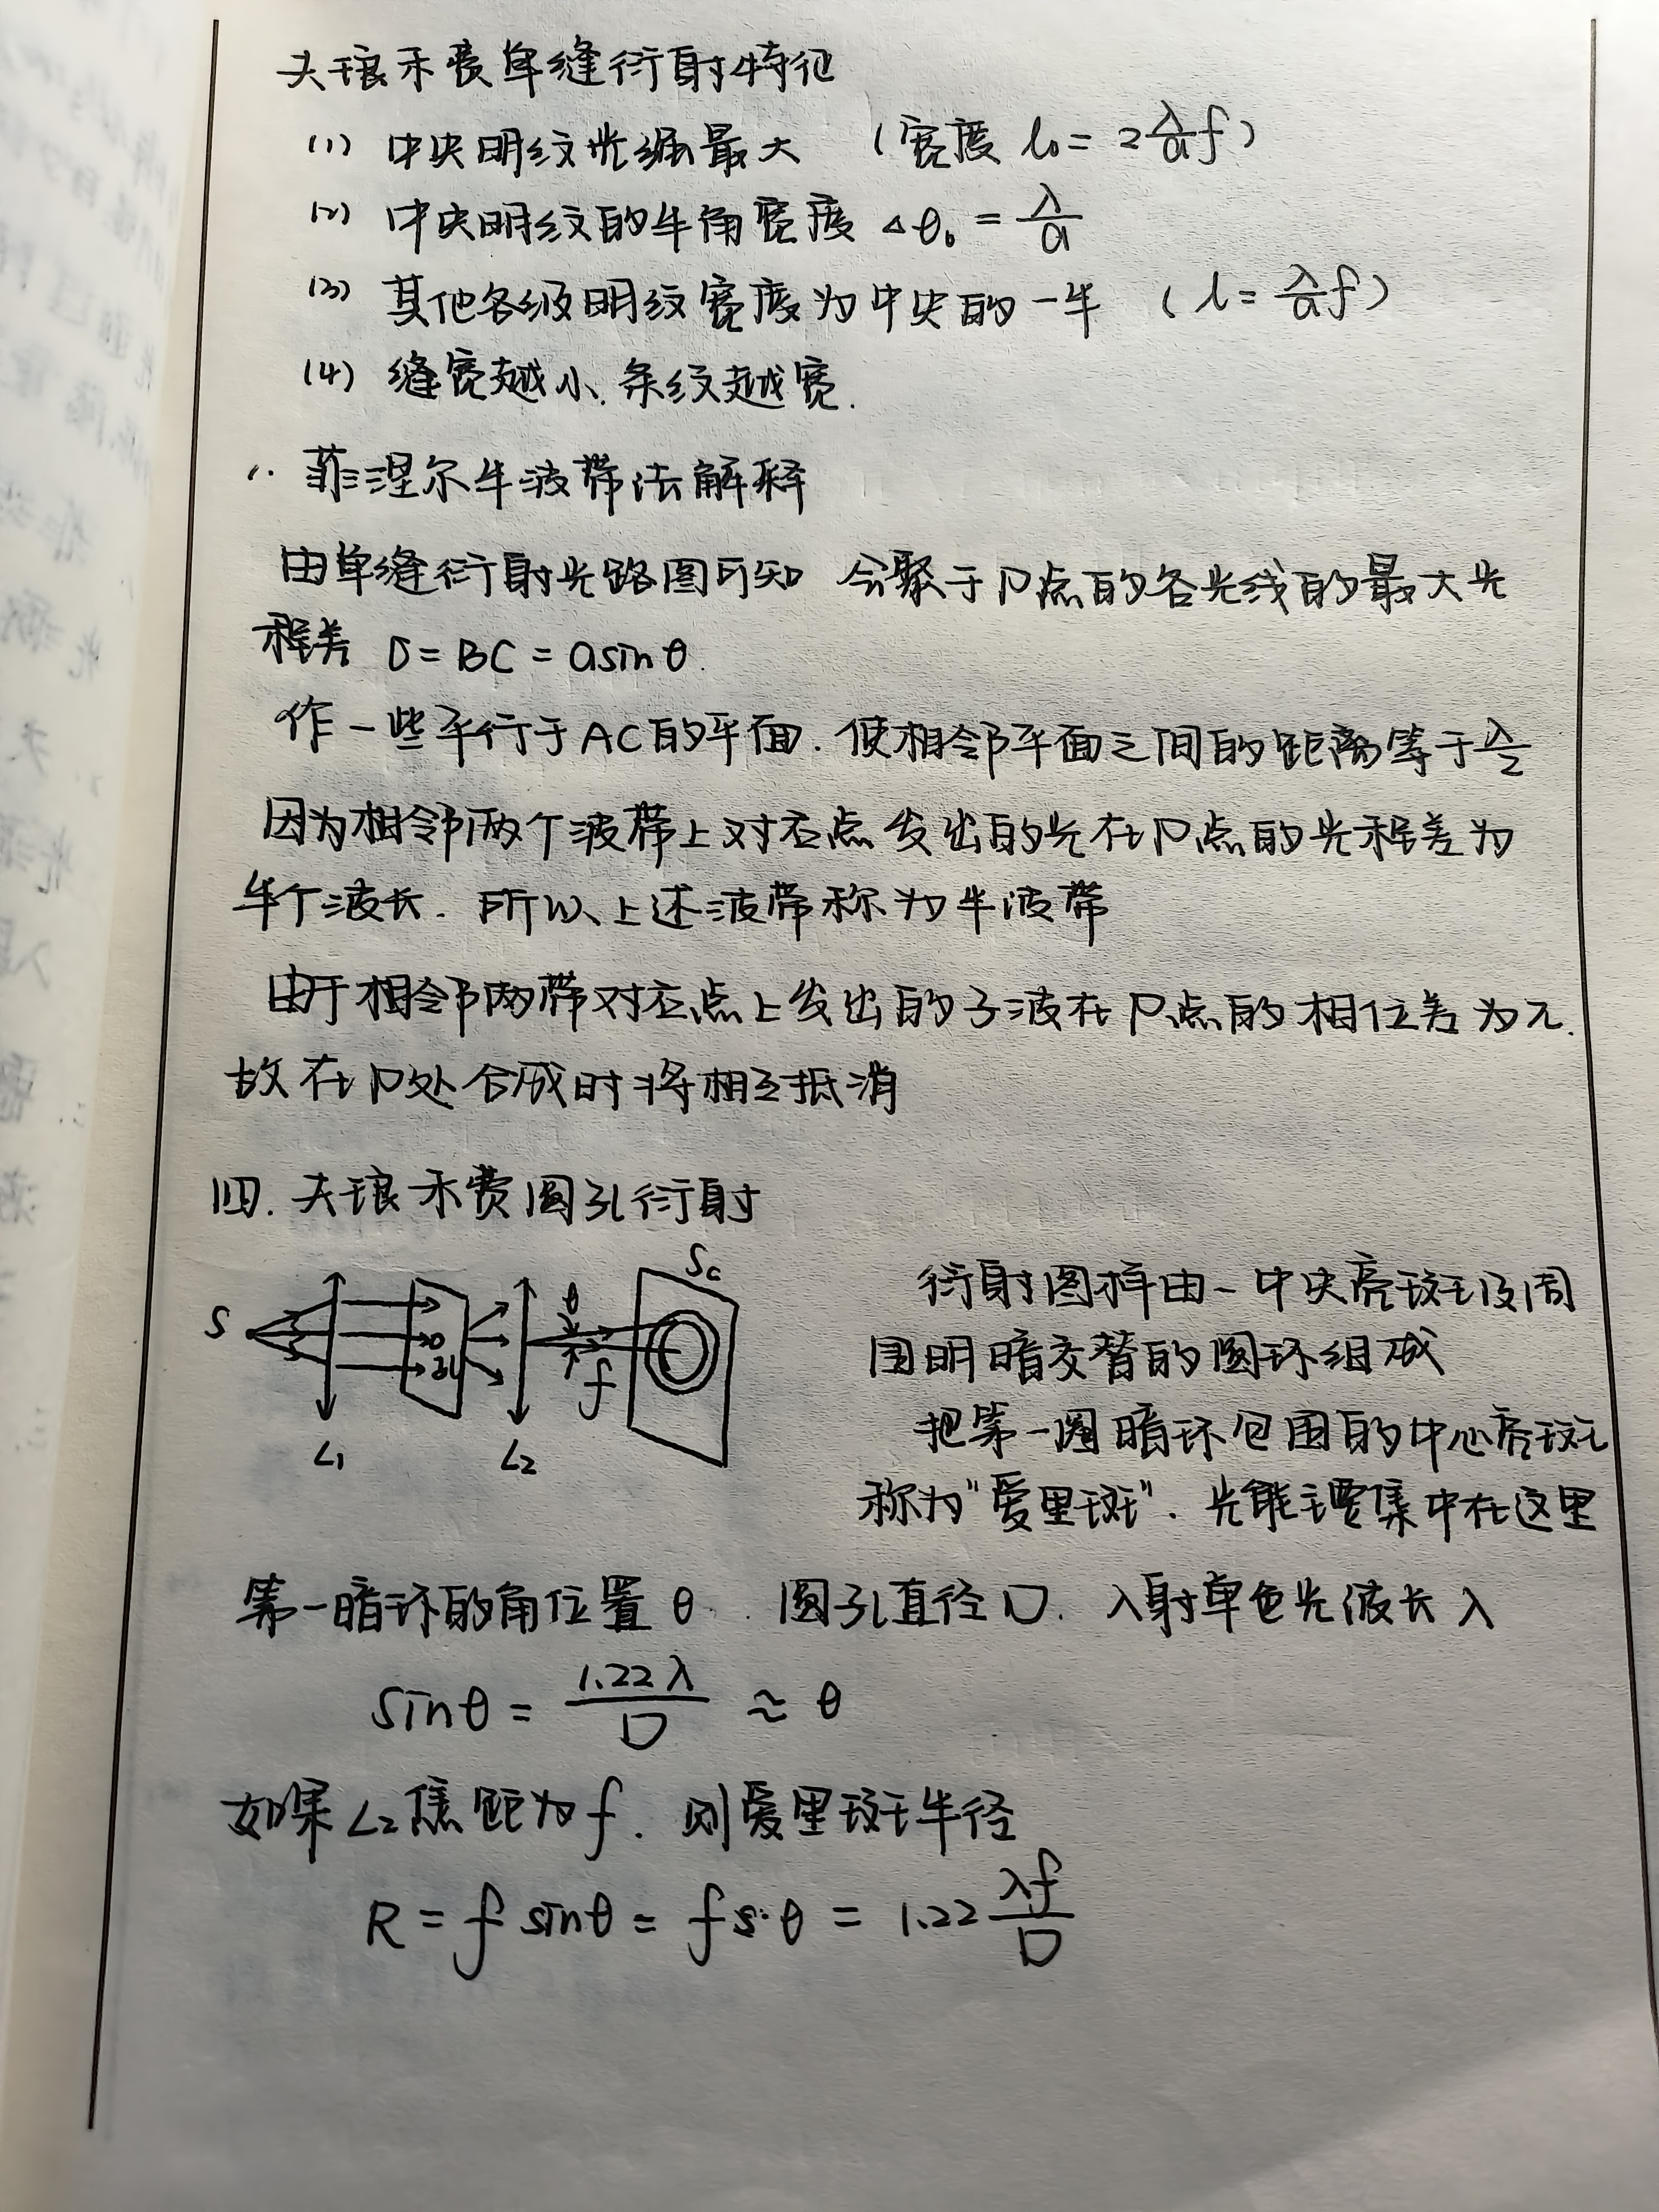 夫琅禾费单缝衍射特征
(1) 中央明纹光强最大 (宽度 l₀ = 2 λ/a f)
(2) 中央明纹的半角宽度 △θ₀ = λ/a
(3) 其他各级明纹宽度为中央的一半 (l = λ/a f)
(4) 缝宽越小. 条纹越宽.
1. 菲涅尔半波带法解释
由单缝衍射光路图可知 会聚于P点的各光线的最大光
程差 δ = BC = a sinθ.
作一些平行于AC的平面. 使相邻平面之间的距离等于 λ/2
因为相邻两个波带上对应点发出的光在P点的光程差为
半个波长. 所以上述波带称为半波带
由于相邻两带对应点上发出的子波在P点的相位差为π.
故在P处合成时将相互抵消
四. 夫琅禾费圆孔衍射
S L₁ L₂ θ f Sc
衍射图样由一中央亮斑及周
围明暗交替的圆环组成
把第一圈暗环包围的中心亮斑
称为"爱里斑". 光能主要集中在这里
第一暗环的角位置 θ. 圆孔直径D. 入射单色光波长 λ
sinθ = 1.22λ/D ≈ θ
如果L₂焦距为f. 则爱里斑半径
R = f sinθ = f·θ = 1.22 λf/D